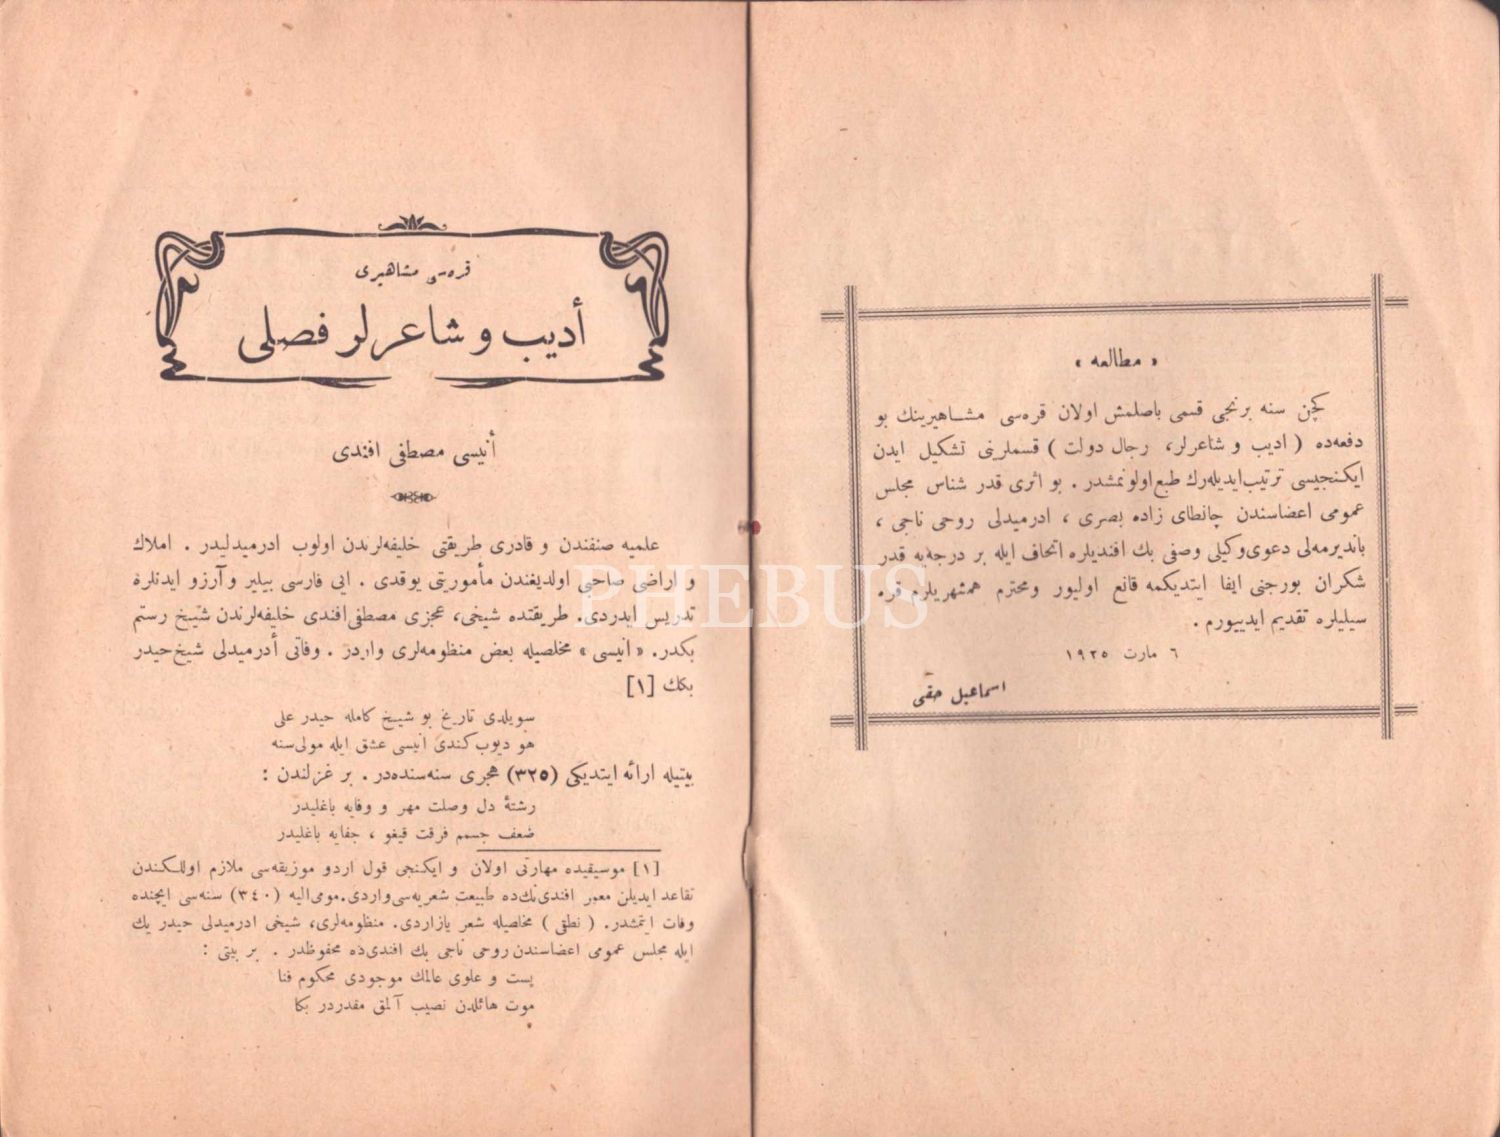 « مطالعه »
کچن سنه برنجی قسمی باصلمش اولان قره‌سی مشاهیرینك بو
دفعه‌ده ( ادیب و شاعرلر، رجال دولت ) قسملرینی تشکیل ایدن
ایکنجیسی ترتیب ایدیله‌رك طبع اولونمشدر . بو اثری قدر شناس مجلس
عمومی اعضاسندن چانطای زاده بصری ، ادرمیدلی روحی ناجی ،
باندیرمه‌لی دعوی وکیلی وصفی بك افندیلره اتحاف ایله بر درجه‌یه قدر
شکران بورجنی ایفا ایتدیکمه قانع اولیور ومحترم همشهریلرم قره
سیلیلره تقدیم ایدییورم .
٦ مارت ١٩٢٥
اسماعیل حقی
قره‌سی مشاهیری
أدیب و شاعرلر فصلی
أنیسی مصطفی افندی
علمیه صنفندن و قادری طریقتی خلیفه‌لرندن اولوب ادرمیدلیدر . املاك
و اراضی صاحبی اولدیغندن مأموریتی یوقدی . ایی فارسی بیلیر و آرزو ایدنلره
تدریس ایدردی. طریقتده شیخی، عجزی مصطفی افندی خلیفه‌لرندن شیخ رستم
بکدر. « انیسی » مخلصیله بعض منظومه‌لری واردر . وفاتی أدرمیدلی شیخ حیدر
بکك [١]
سویلدی تاریخ بو شیخ کامله حیدر علی
هو دیوب کندی انیسی عشق ایله مولی‌سنه
بیتیله ارائه ایتدیکی (٣٢٥) هجری سنه‌سنده‌در . بر غزلندن :
رشتهٔ دل وصلت مهر و وفایه باغلیدر
ضعف جسمم فرقت قیغو ، جفایه باغلیدر
[١] موسیقیده مهارتی اولان و ایکنجی قول اردو موزیقه‌سی ملازم اوللکندن
تقاعد ایدیلن معمر افندی‌نك‌ده طبیعت شعریه‌سی واردی. مومی الیه (٣٤٠) سنه‌سی ایچنده
وفات ایتمشدر. ( نطقی ) مخلصیله شعر یازاردی. منظومه‌لری، شیخی ادرمیدلی حیدر بك
ایله مجلس عمومی اعضاسندن روحی ناجی بك افندی‌ده محفوظدر . بر بیتی :
پست و علوی عالمك موجودی محکوم فنا
موت هائلدن نصیب آلمق مقدردر بکا
PHEBUS